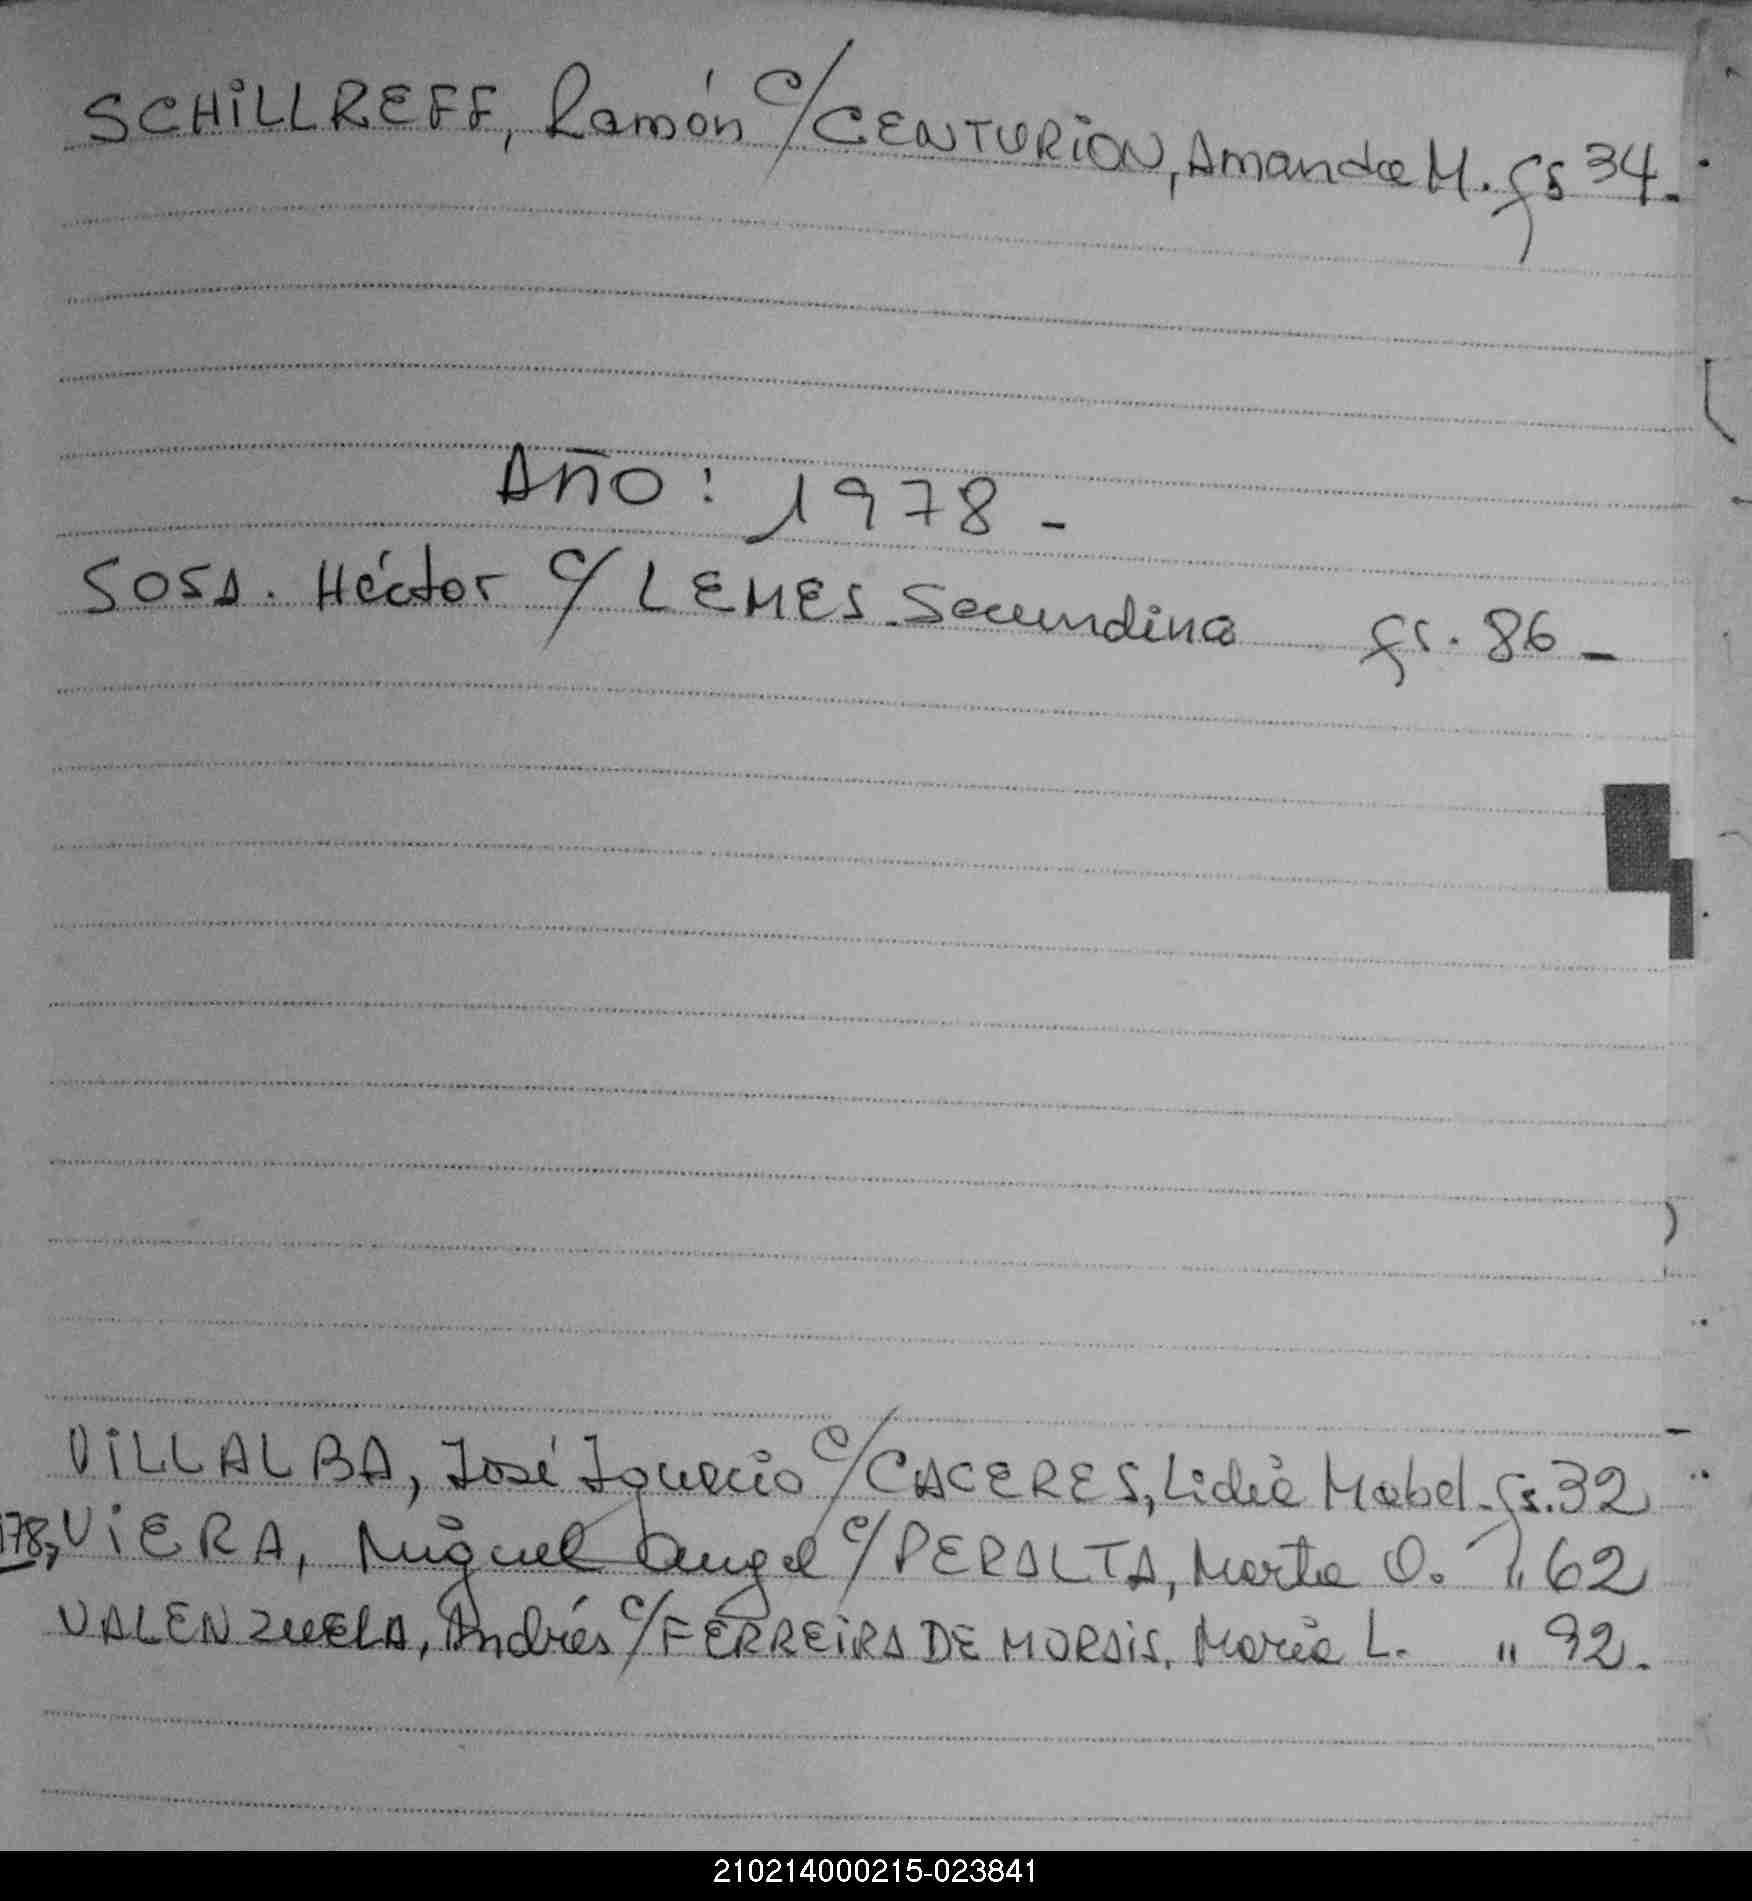 SCHILLREFF, Ramón c/ CENTURION, Amanda M. fs 34.
AÑO: 1978 -
SOSA. Héctor c/ LEMES. Secundina fs. 86 -
VILLALBA, José Ignacio c/ CACERES, Lidia Mabel. fs. 32
178, VIERA, Miguel Angel c/ PERALTA, Marta O. " 62
VALENZUELA, Andrés c/ FERREIRA DE MORAIS, María L. " 92.
210214000215-023841